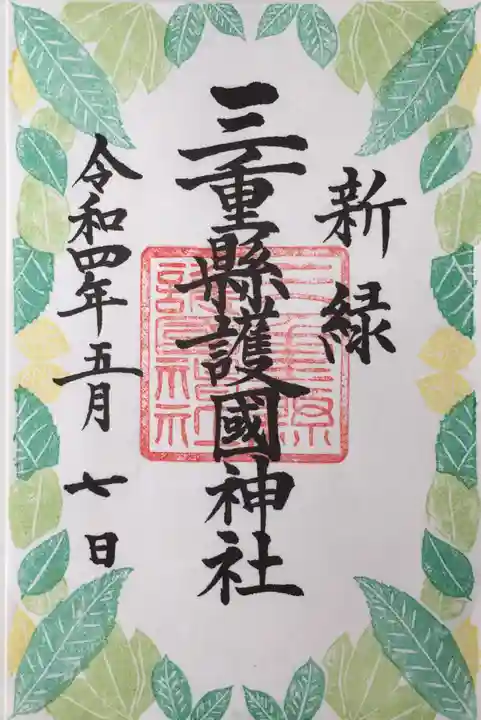 新緑
三重縣護國神社
三重縣護國神社
令和四年五月七日